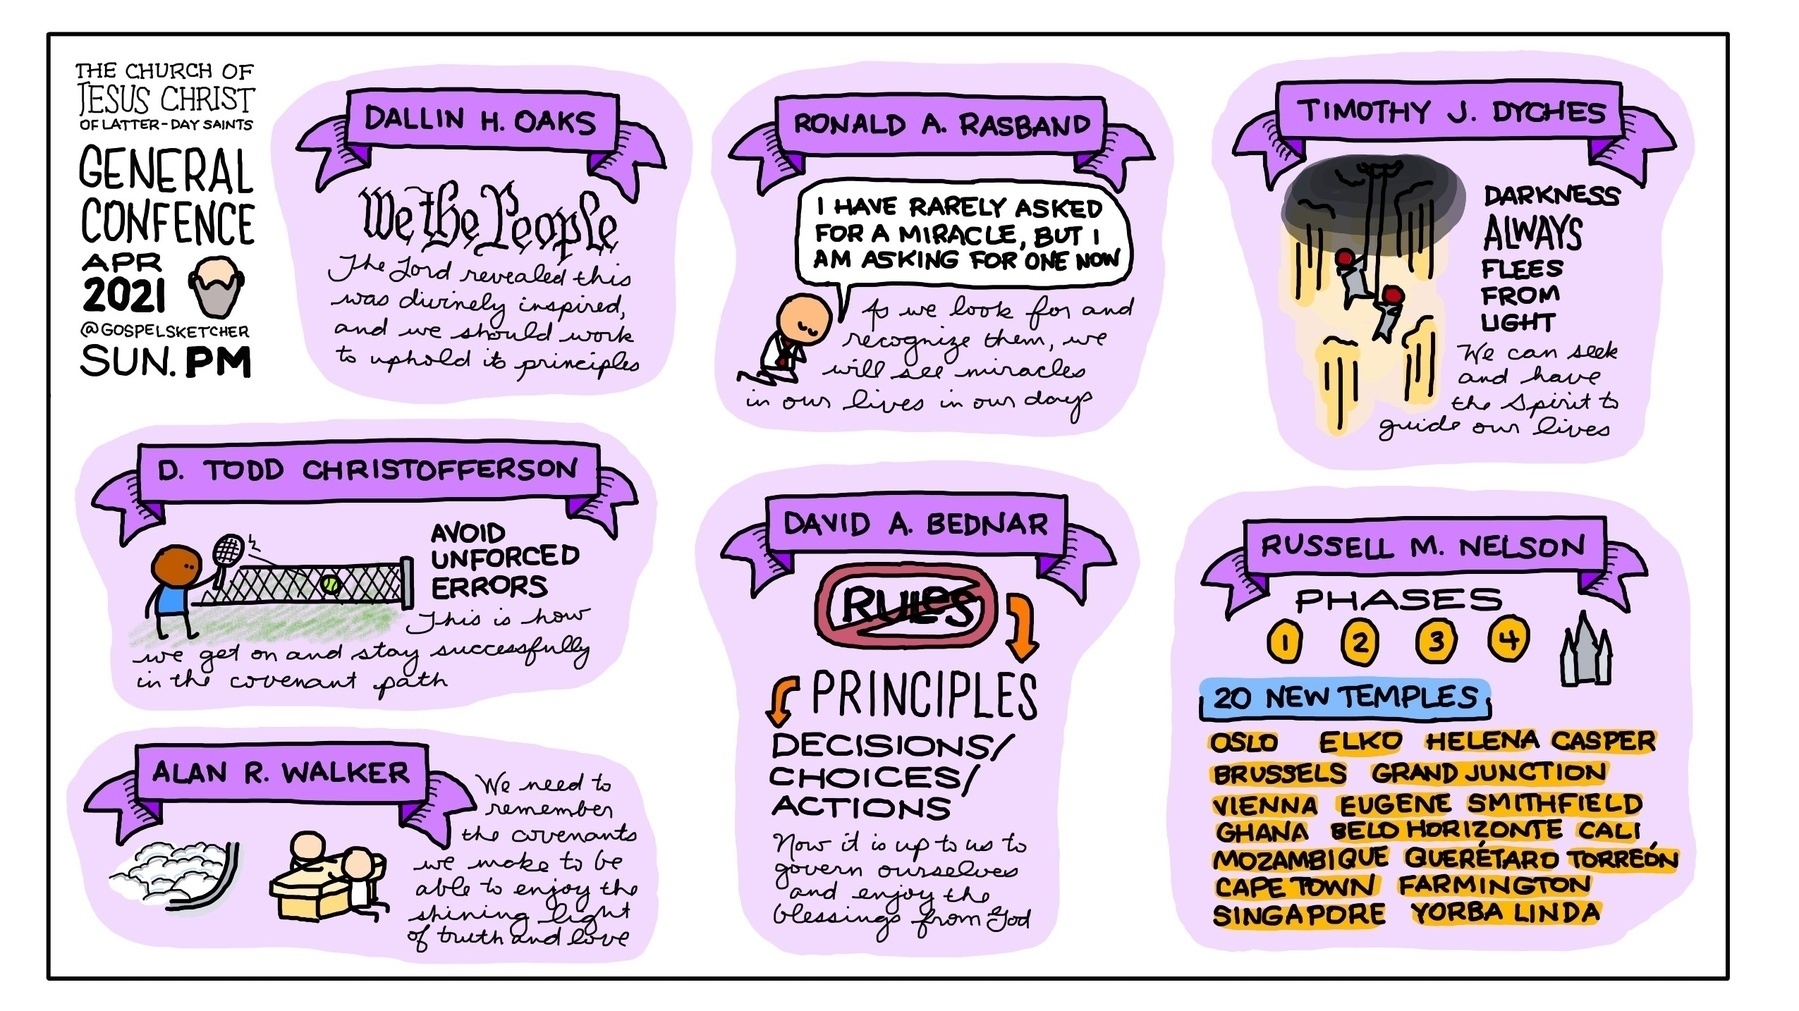 THE CHURCH OF
JESUS CHRIST
OF LATTER-DAY SAINTS
GENERAL
CONFENCE
APR
2021
@GOSPELSKETCHER
SUN. PM
DALLIN H. OAKS
We the People
The Lord revealed this
was divinely inspired,
and we should work
to uphold its principles
RONALD A. RASBAND
I HAVE RARELY ASKED
FOR A MIRACLE, BUT I
AM ASKING FOR ONE NOW
As we look for and
recognize them, we
will see miracles
in our lives in our days
TIMOTHY J. DYCHES
DARKNESS
ALWAYS
FLEES
FROM
LIGHT
We can seek
and have
the Spirit to
guide our lives
D. TODD CHRISTOFFERSON
AVOID
UNFORCED
ERRORS
This is how
we get on and stay successfully
in the covenant path
DAVID A. BEDNAR
RULES
PRINCIPLES
DECISIONS/
CHOICES/
ACTIONS
Now it is up to us to
govern ourselves
and enjoy the
blessings from God
RUSSELL M. NELSON
PHASES
1 2 3 4
20 NEW TEMPLES
OSLO ELKO HELENA CASPER
BRUSSELS GRAND JUNCTION
VIENNA EUGENE SMITHFIELD
GHANA BELO HORIZONTE CALI
MOZAMBIQUE QUERÉTARO TORREÓN
CAPE TOWN FARMINGTON
SINGAPORE YORBA LINDA
ALAN R. WALKER
We need to
remember
the covenants
we make to be
able to enjoy the
shining light
of truth and love